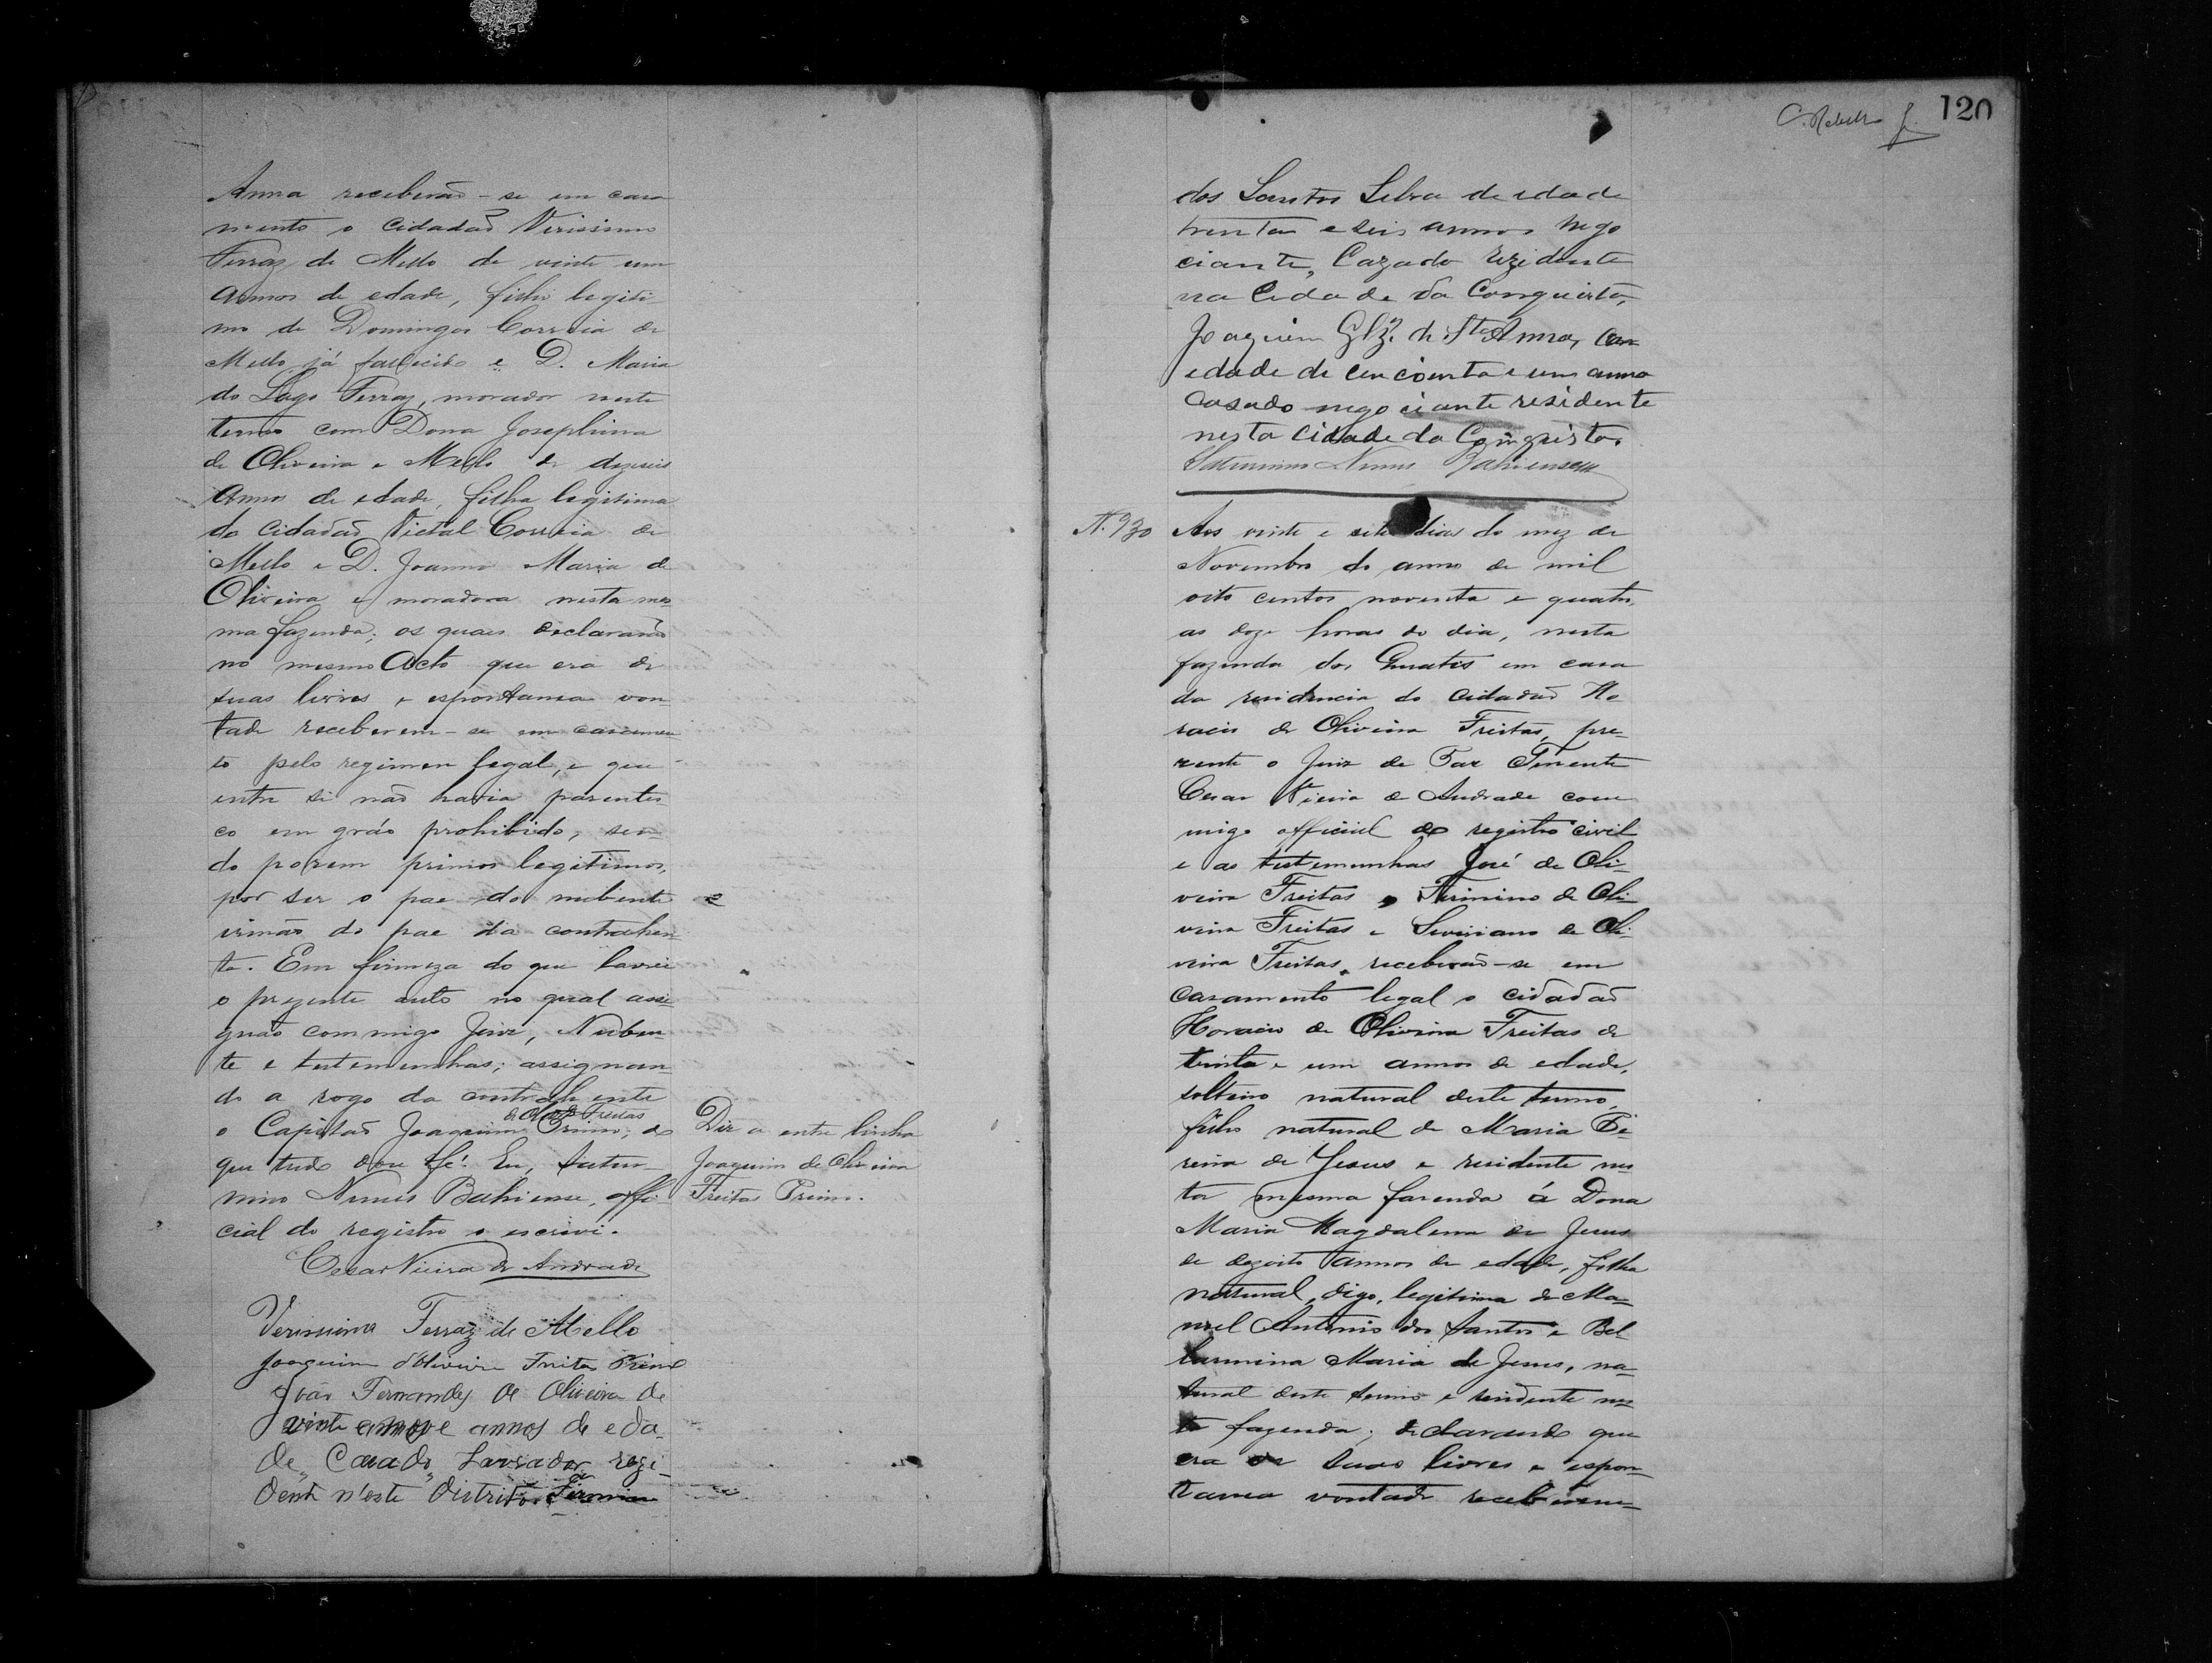 Anna receberão-se em casa
mento o Cidadão Verissimo
Ferraz de Mello de vinte um
annos de edade, filho legiti
mo de Domingos Correia de
Mello já fallecido e D. Maria
do Lago Ferraz, morador neste
termo com Dona Josephina
de Oliveira e Mello de dezeseis
annos de edade, filha legitima
do Cidadão Victal Correia de
Mello e D. Joanna Maria de
Oliveira e moradora nesta mes
ma fazenda; os quaes declararão
no mesmo Acto que era de
suas livres e espontanea von
tade receberem-se em casamen
to pelo regimen legal, e que
entre si não havia parentes
co em gráo prohibido, sen-
do porem primos legitimos,
por ser o pae do nubente
irmão do pae da contrahen
te. Em firmeza do que lavrei
o prezente auto no qual assi-
gnão commigo Juiz, Nuben-
te e testemunhas; assignan-
do a rogo da contrahente
de Olivª Freitas
o Capitão Joaquim Primo; do
que tudo dou fé. Eu, Satur-
nino Nunes Bahiense, offi-
cial do registro o escrevi.
Diz a entre linha
Joaquim de Oliveira
Freitas Primo.
Cesar Vieira de Andrade
Verissimo Ferraz de Mello
Joaquim d'Oliveira Freitas Primo
João Fernandes de Oliveira de
vinte e nove annos de eda-
de, Casado, Lavrador rezi-
dente n'este Districto.
120
dos Santos Silva de edade
trenta e seis annos nego
ciante, Cazado rezidente
na Cidade da Conquista,
Joaquim Glz. de Sta Anna, com
edade de cincoenta e um anno
casado negociante residente
nesta Cidade da Conquista.
Saturnino Nunes Bahiense
N. 930
Aos vinte e sete dias do mez de
Novembro do anno de mil
oito centos noventa e quatro,
as doze horas do dia, nesta
fazenda dos em casa
da residencia do cidadão Ho
racio de Oliveira Freitas, pre-
zente o Juiz de Paz Tenente
Cesar Vieira de Andrade com
migo official do registro civil
e as testemunhas José de Oli-
veira Freitas, Firmino de Oli-
veira Freitas e Severiano de Oli-
veira Freitas, receberão-se em
casamento legal o cidadão
Horacio de Oliveira Freitas de
trinta e um annos de edade,
solteiro natural deste termo,
filho natural de Maria Pe-
reira de Jesus e residente nes
ta mesma fazenda á Dona
Maria Magdalena de Jesus
de dezoito annos de edade, filha
natural, digo, legitima de Ma-
noel Antonio dos Santos e Bel-
larmina Maria de Jesus, na-
tural deste termo e residente nes
ta fazenda; declarando que
era de suas livres e espon-
tanea vontade receberem-